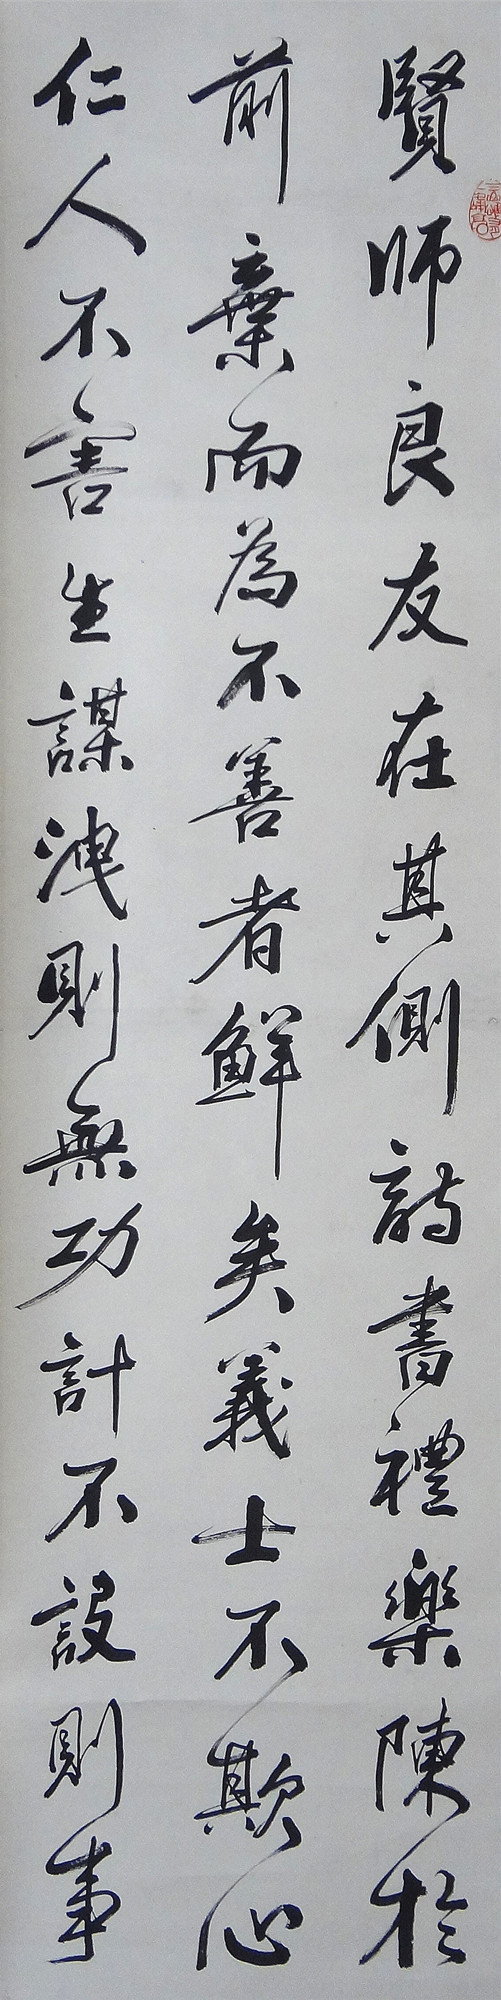 賢師良友在其側詩書禮樂陳於
前棄而為不善者鮮矣義士不欺心
仁人不害生謀洩則無功計不設則事